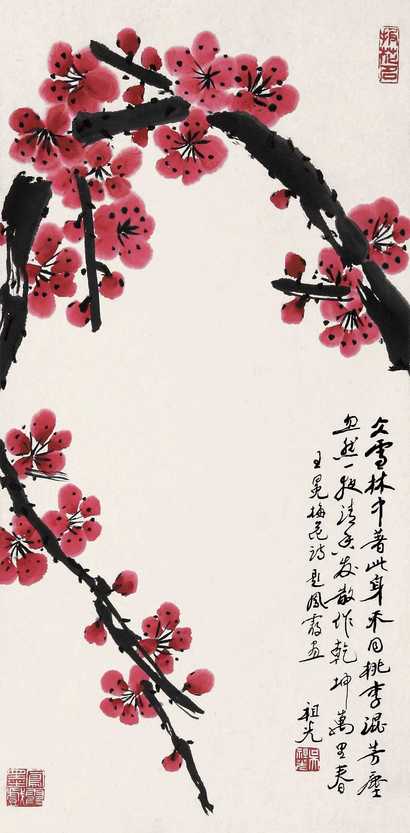 報花名
仌雪林中著此身不同桃李混芳塵
忽然一夜清香發散作乾坤萬里春
王冕梅花詩題鳳霞畫
祖光